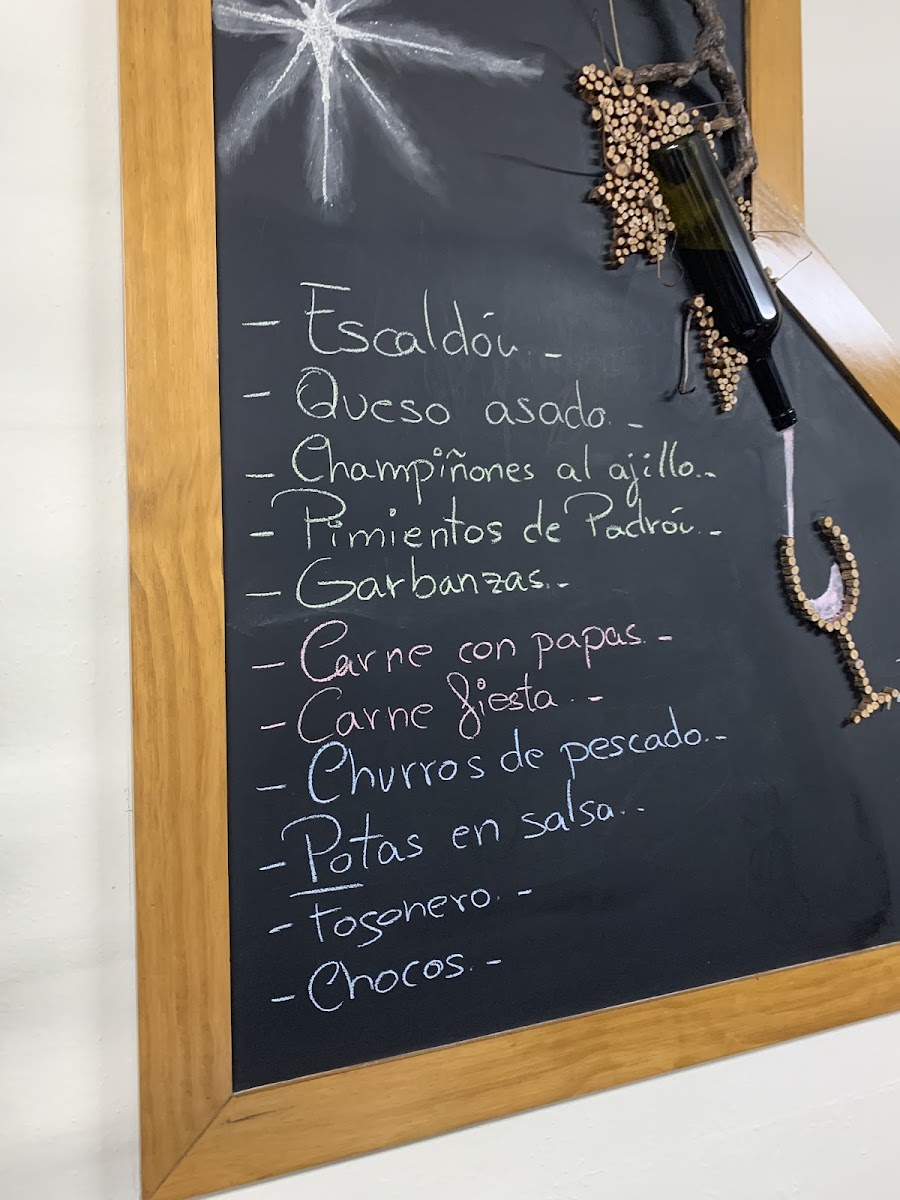 - Escaldón.-
- Queso asado.-
- Champiñones al ajillo.-
- Pimientos de Padrón.-
- Garbanzas.-
- Carne con papas.-
- Carne fiesta.-
- Churros de pescado.-
- Potas en salsa.-
- Fogonero.-
- Chocos.-